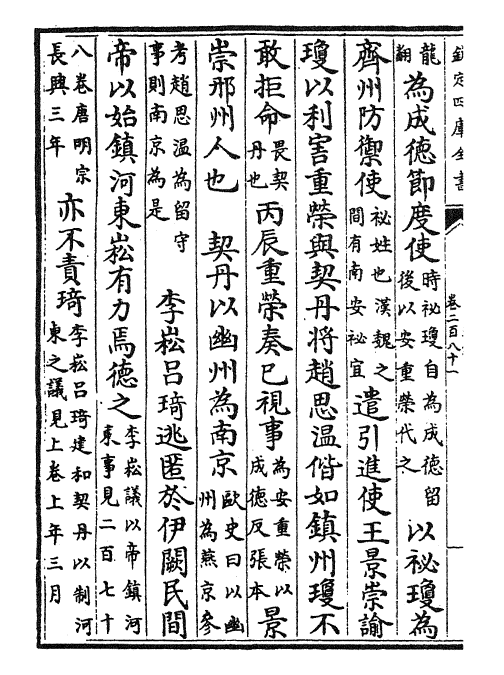 欽定四庫全書
卷二百八十一
一
龍翻為成德節度使時祕瓊自為成德留後以安重榮代之以祕瓊為
齊州防禦使祕姓也漢魏之間有南安祕宜遣引進使王景崇諭
瓊以利害重榮與契丹將趙思温偕如鎮州瓊不
敢拒命畏契丹也丙辰重榮奏已視事為安重榮以成德反張本景
崇邢州人也　契丹以幽州為南京歐史曰以幽州為燕京參
考趙思温為留守事則南京為是　李崧吕琦逃匿於伊闕民間
帝以始鎮河東崧有力焉德之李崧議以帝鎮河東事見二百七十
八卷唐明宗長興三年亦不責琦李崧吕琦建和契丹以制河東之議見上卷上年三月